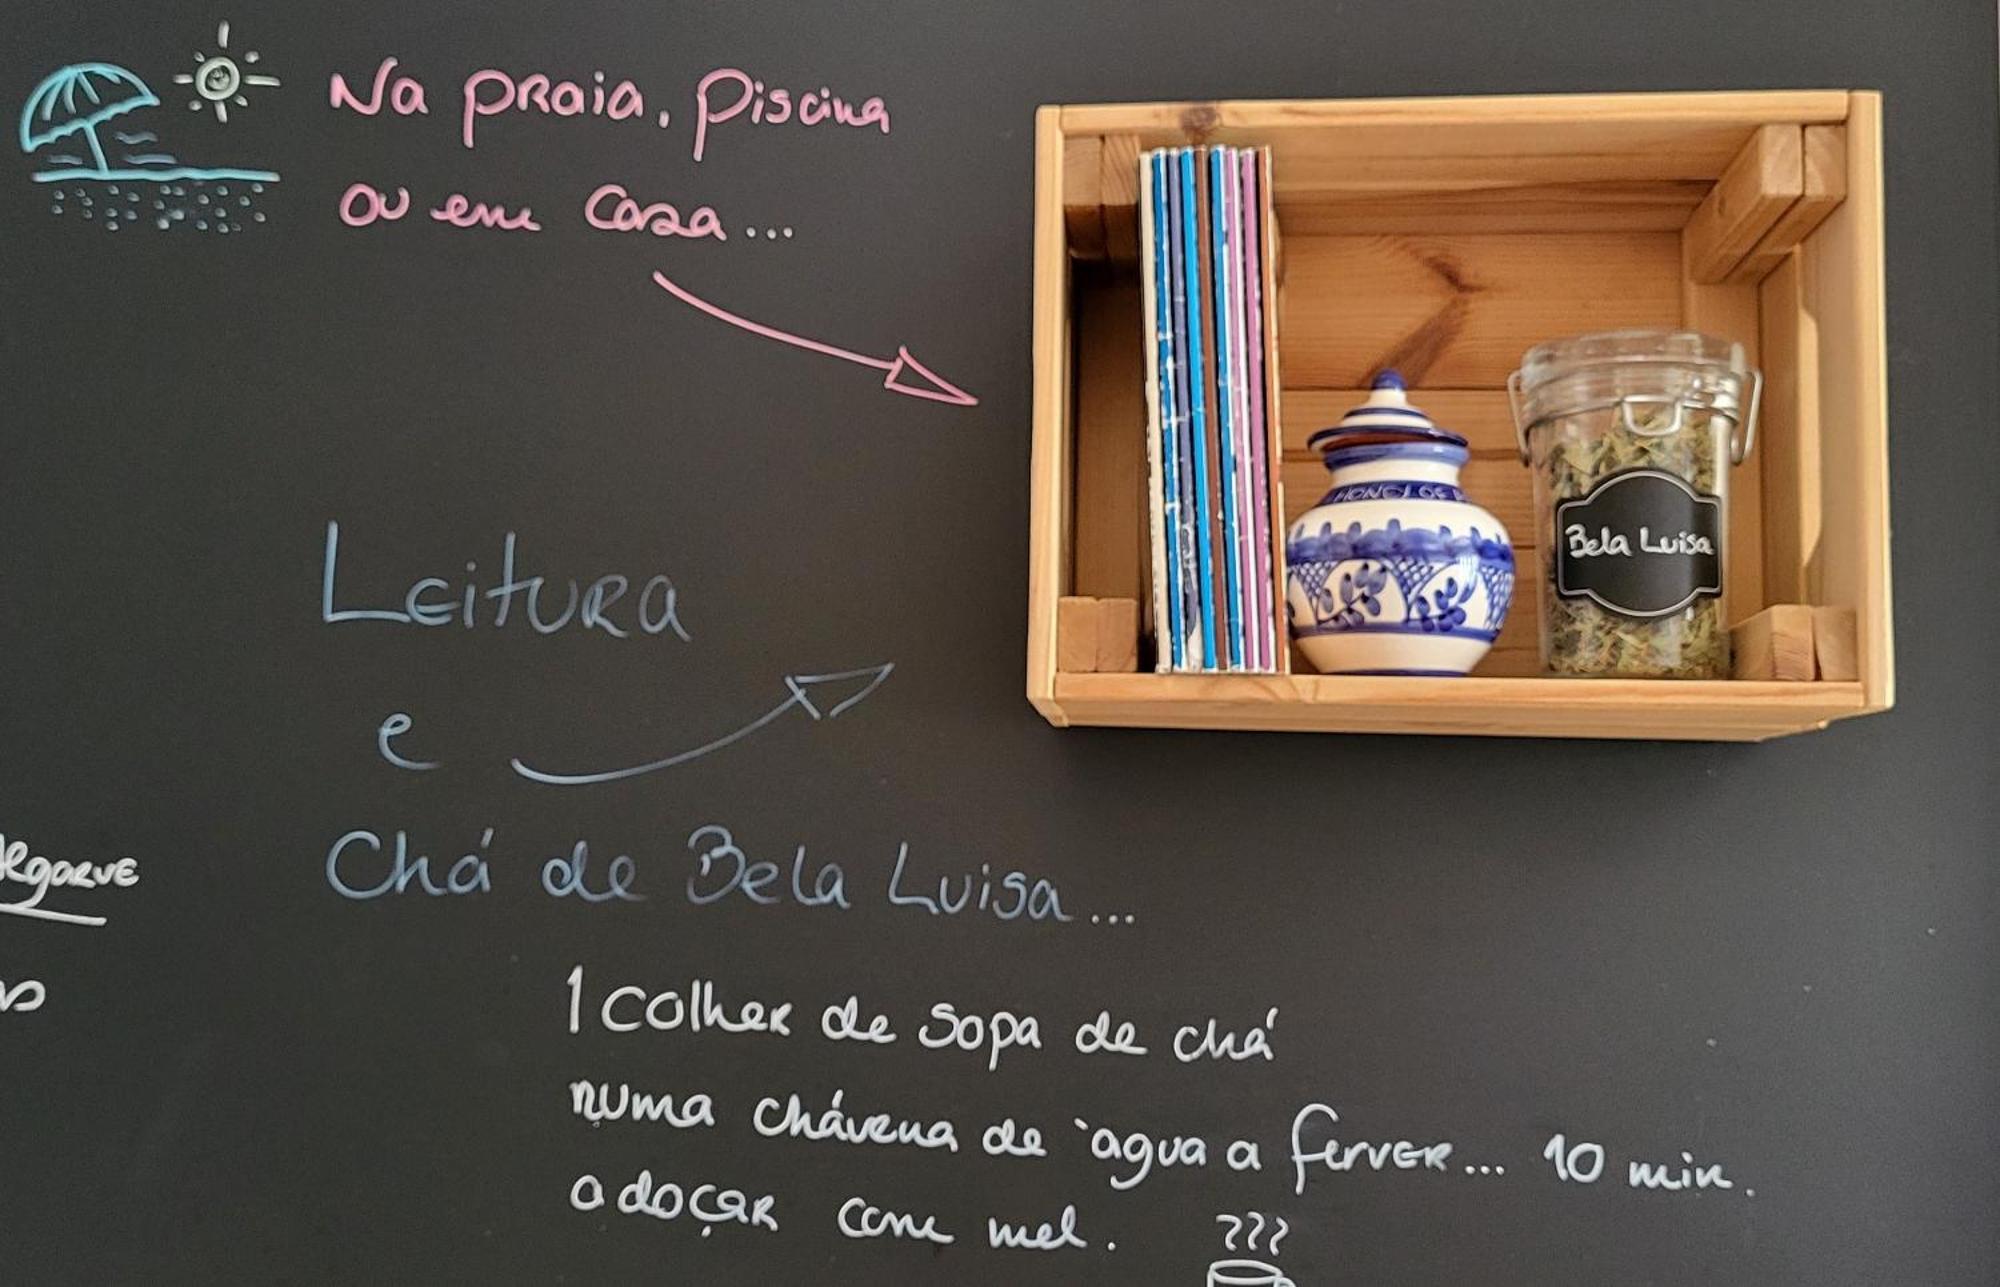 Na praia, piscina
ou em casa...
Bela Luisa
Leitura
e
Chá de Bela Luisa...
Algarve
1 colher de sopa de chá
numa chávena de àgua a ferver... 10 min.
adoçar com mel.